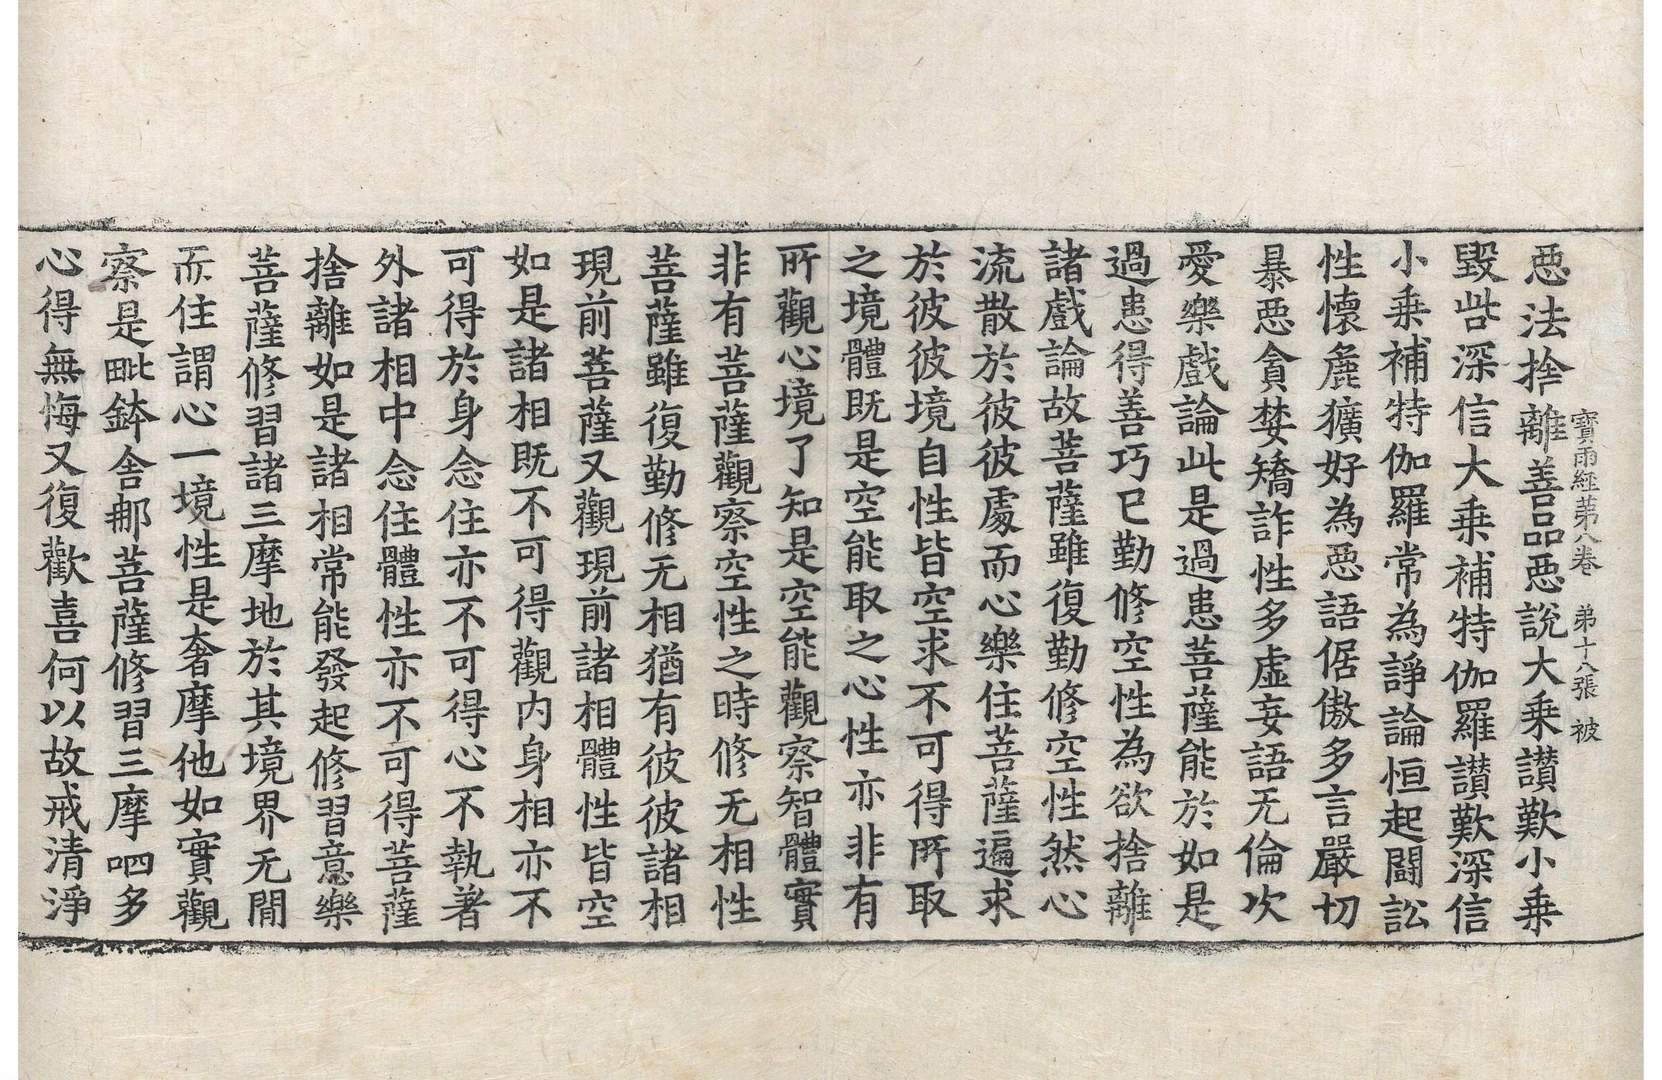 惡法捨離善品惡說大乗讃歎小乗
寶雨經苐八卷 弟十八張 被
毀呰深信大乗補特伽羅讃歎深信
小乗補特伽羅常為諍論恒起鬪訟
性懷麁獷好為惡語倨傲多言嚴切
暴惡貪婪矯詐性多虛妄語无倫次
愛樂戲論此是過患菩薩能於如是
過患得善巧已勤修空性為欲捨離
諸戲論故菩薩雖復勤修空性然心
流散於彼彼處而心樂住菩薩遍求
於彼彼境自性皆空求不可得所取
之境體既是空能取之心性亦非有
所觀心境了知是空能觀察智體實
非有菩薩觀察空性之時修无相性
菩薩雖復勤修无相猶有彼彼諸相
現前菩薩又觀現前諸相體性皆空
如是諸相既不可得觀内身相亦不
可得於身念住亦不可得心不執著
外諸相中念住體性亦不可得菩薩
捨離如是諸相常能發起修習意樂
菩薩修習諸三摩地於其境界无閒
而住謂心一境性是奢摩他如實觀
察是毗鉢舍那菩薩修習三摩呬多
心得無悔又復歡喜何以故戒清淨